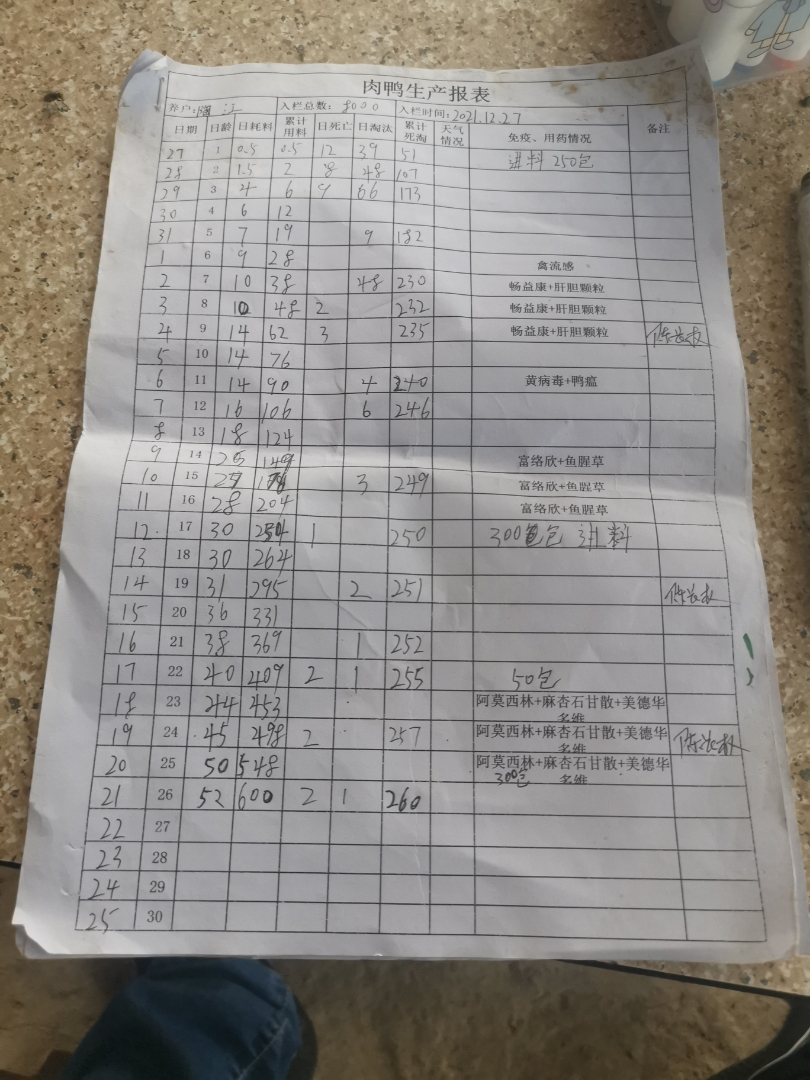 肉鸭生产报表
养户: 江 入栏总数: 8000 入栏时间: 2021.12.27
日期 日龄 日耗料 累计用料 日死亡 日淘汰 累计死淘 天气情况 免疫、用药情况 备注
27 1 0.5 0.5 12 39 51 进料 250包
28 2 1.5 2 8 48 107
29 3 4 6 9 66 173
30 4 6 12
31 5 7 19 9 182
1 6 9 28 禽流感
2 7 10 38 48 230 畅益康+肝胆颗粒
3 8 10 48 2 232 畅益康+肝胆颗粒
4 9 14 62 3 235 畅益康+肝胆颗粒
5 10 14 76
6 11 14 90 4 240 黄病毒+鸭瘟
7 12 16 106 6 246
8 13 18 124
9 14 25 149 富络欣+鱼腥草
10 15 27 3 249 富络欣+鱼腥草
11 16 28 204 富络欣+鱼腥草
12. 17 30 1 250 300包 进料
13 18 30 264
14 19 31 295 2 251
15 20 36 331
16 21 38 369 1 252
17 22 40 409 2 1 255 50包
18 23 44 453 阿莫西林+麻杏石甘散+美德华多维
19 24 45 498 2 257 阿莫西林+麻杏石甘散+美德华多维
20 25 50 548 阿莫西林+麻杏石甘散+美德华多维 300包
21 26 52 600 2 1 260
22 27
23 28
24 29
25 30